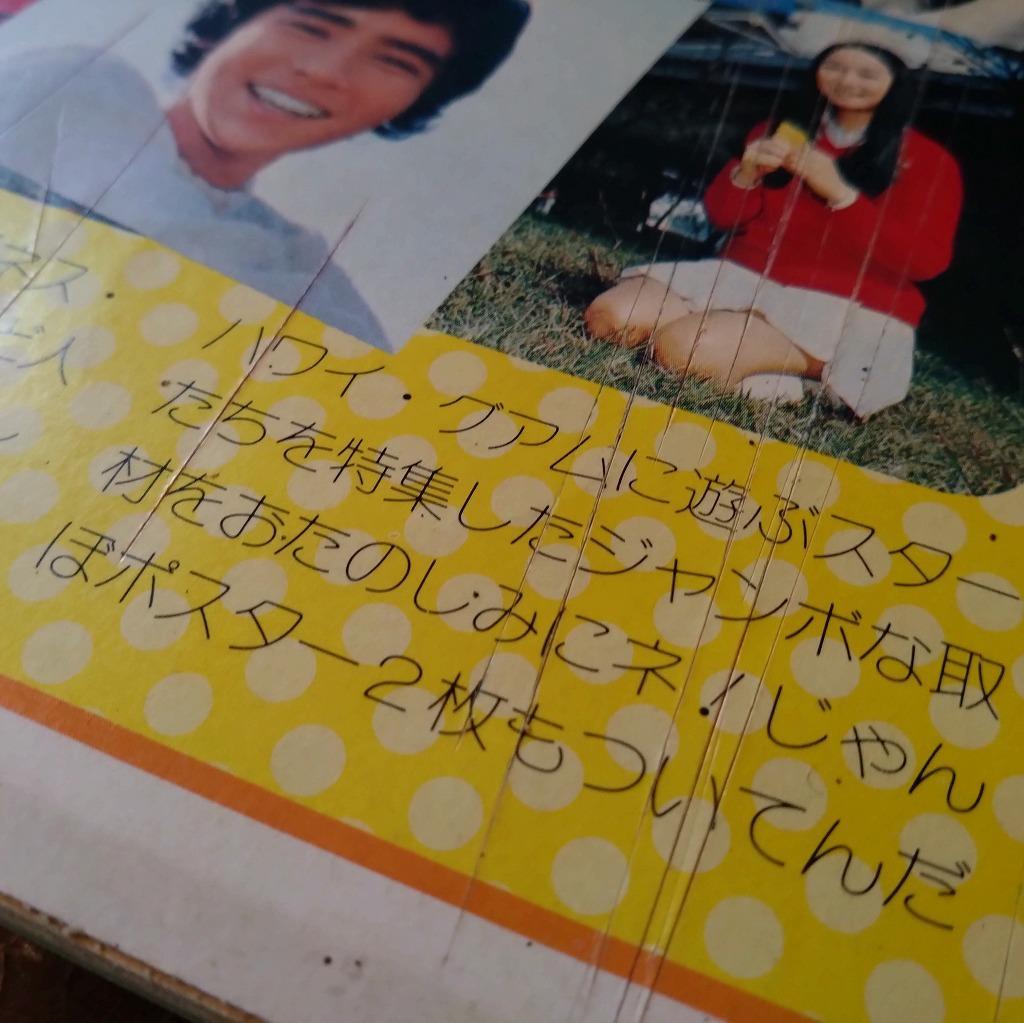 ハワイ・グアムに遊ぶスター
たちを特集したジャンボな取
材をおたのしみにネ！じゃん
ぼポスター２枚もついてんだ